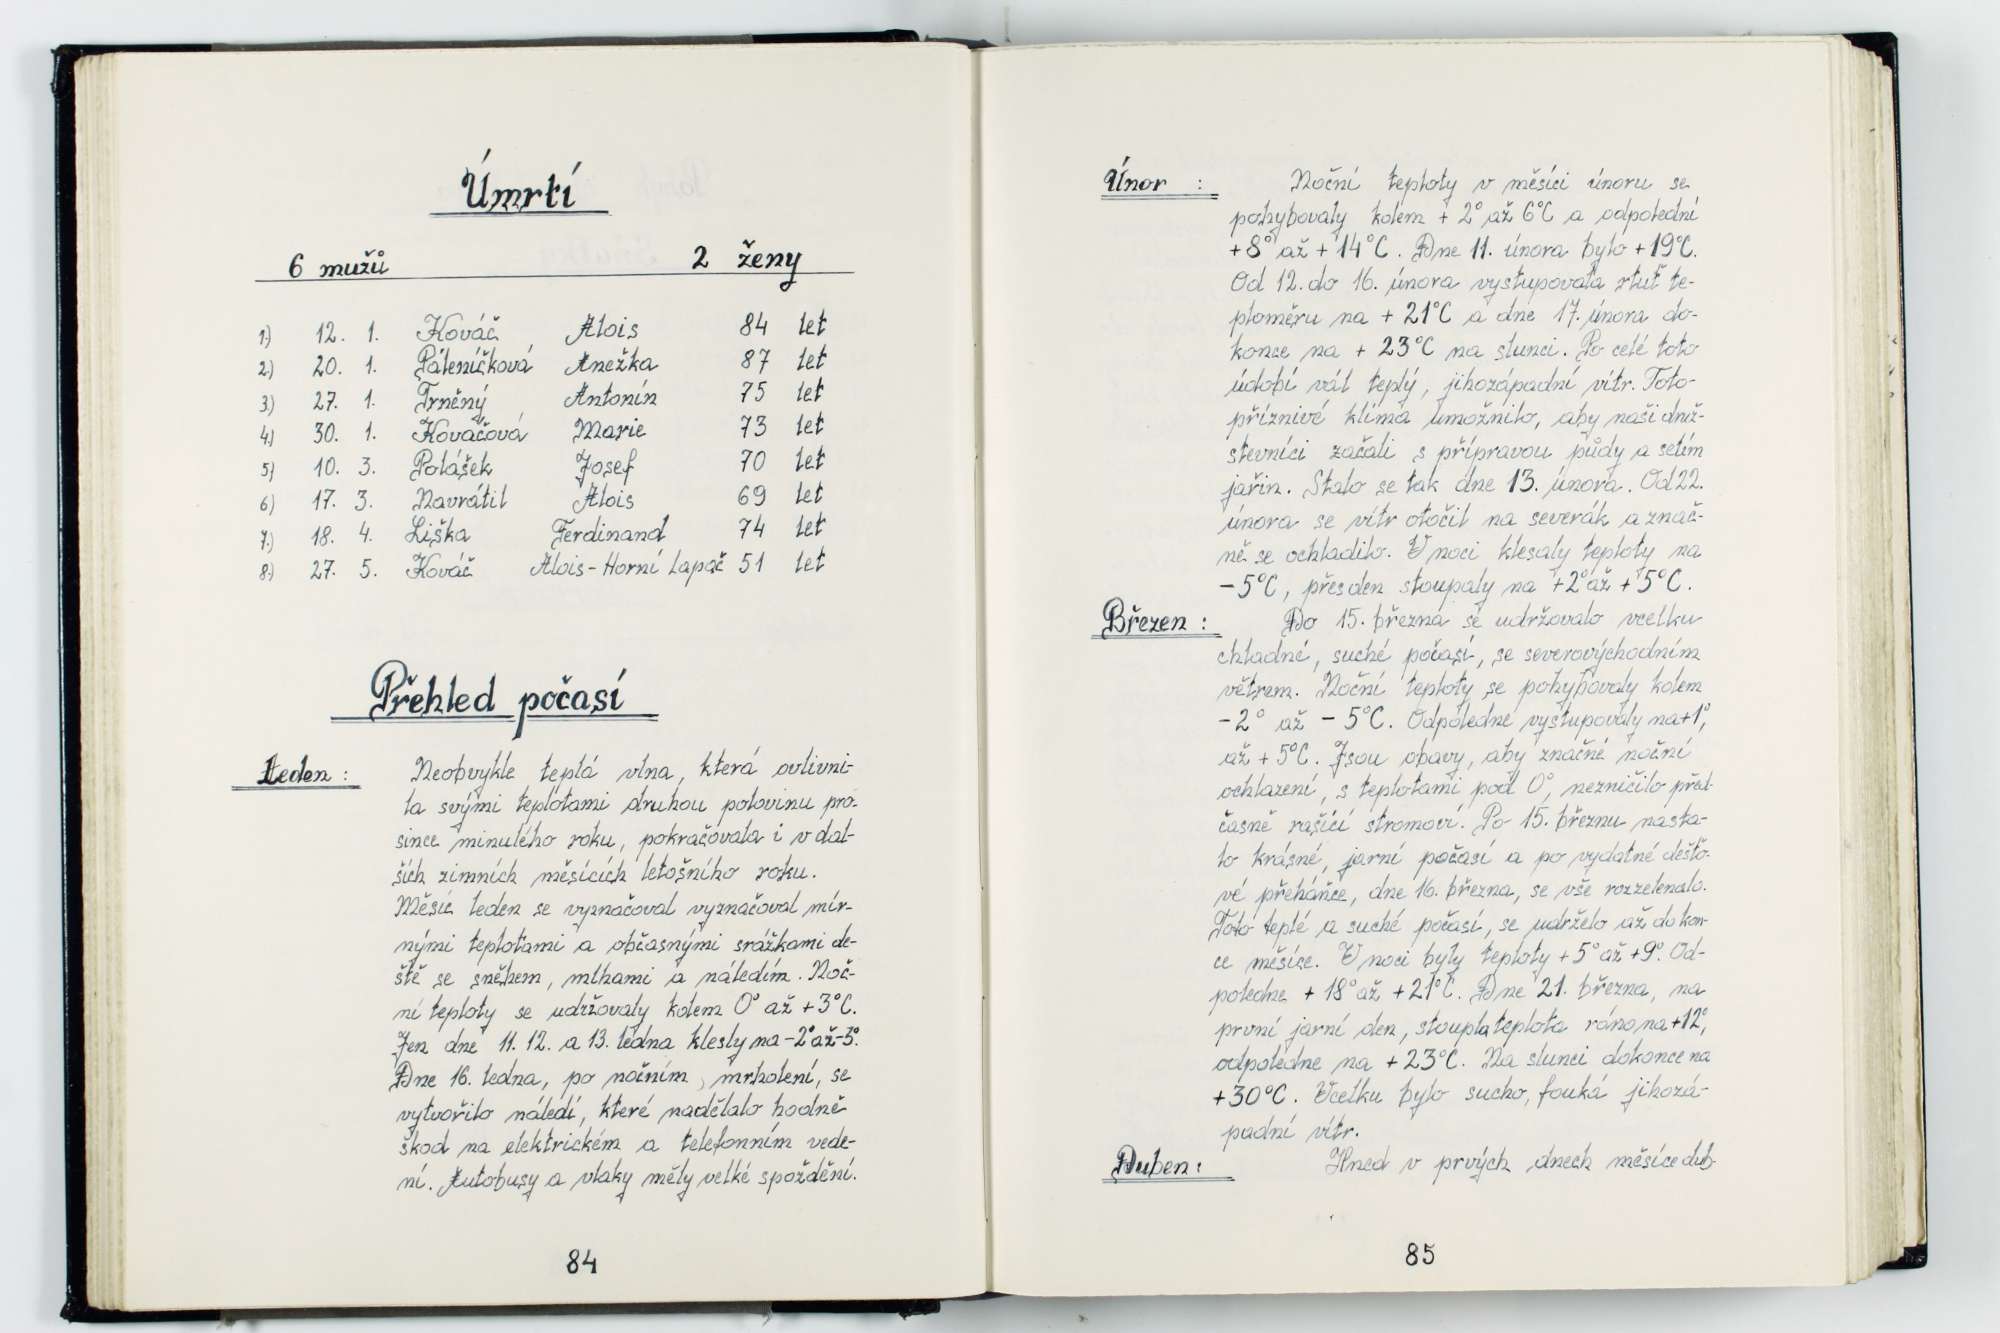 Úmrtí
6 mužů 2 ženy
1) 12. 1. Kováč Alois 84 let
2) 20. 1. Páleníčková Anežka 87 let
3) 27. 1. Trněný Antonín 75 let
4) 30. 1. Kovačová Marie 73 let
5) 10. 3. Polášek Josef 70 let
6) 17. 3. Navrátil Alois 69 let
7) 18. 4. Liška Ferdinand 74 let
8) 27. 5. Kováč Alois - Horní Lapač 51 let
Přehled počasí
Leden : Neobvykle teplá vlna, která ovlivni-
la svými teplotami druhou polovinu pro-
since minulého roku, pokračovala i v dal-
ších zimních měsících letošního roku.
Měsíc leden se vyznačoval vyznačoval mír-
nými teplotami a občasnými srážkami de-
ště se sněhem, mlhami a náledím. Noč-
ní teploty se udržovaly kolem 0° až +3°C.
Jen dne 11. 12. a 13. ledna klesly na -2° až -3°.
Dne 16. ledna, po nočním, mrholení, se
vytvořilo náledí, které nadělalo hodně
škod na elektrickém a telefonním vede-
ní. Autobusy a vlaky měly velké spoždění.
84
Únor : Noční teploty v měsíci únoru se
pohybovaly kolem + 2° až 6°C a odpolední
+8° až + 14°C. Dne 11. února bylo +19°C.
Od 12. do 16. února vystupovala rtuť te-
ploměru na + 21°C a dne 17. února do-
konce na + 23°C na slunci. Po celé toto
údobí vál teplý, jihozápadní vítr. Toto-
příznivé klima umožnilo, aby naši druž-
stevníci začali s přípravou půdy a setím
jařin. Stalo se tak dne 13. února. Od 22.
února se vítr otočil na severák a znač-
ně se ochladilo. V noci klesaly teploty na
-5°C, přes den stoupaly na +2° až +5°C.
Březen : Do 15. března se udržovalo vcelku
chladné, suché počasí, se severovýchodním
větrem. Noční teploty se pohybovaly kolem
-2° až -5°C. Odpoledne vystupovaly na +1°,
až + 5°C. Jsou obavy, aby značné noční
ochlazení, s teplotami pod 0°, nezničilo před-
časně rašící stromoví. Po 15. březnu nasta-
lo krásné, jarní počasí a po vydatné dešťo-
vé přeháňce, dne 16. března, se vše rozzelenalo.
Toto teplé a suché počasí, se udrželo až do kon-
ce měsíce. V noci byly teploty +5° až +9°. Od-
poledne + 18° až +21°C. Dne 21. března, na
první jarní den, stoupla teplota ráno, na +12°,
odpoledne na + 23°C. Na slunci dokonce na
+30°C. Vcelku bylo sucho, fouká jihozá-
padní vítr.
Duben : Hned v prvých dnech měsíce dub-
85